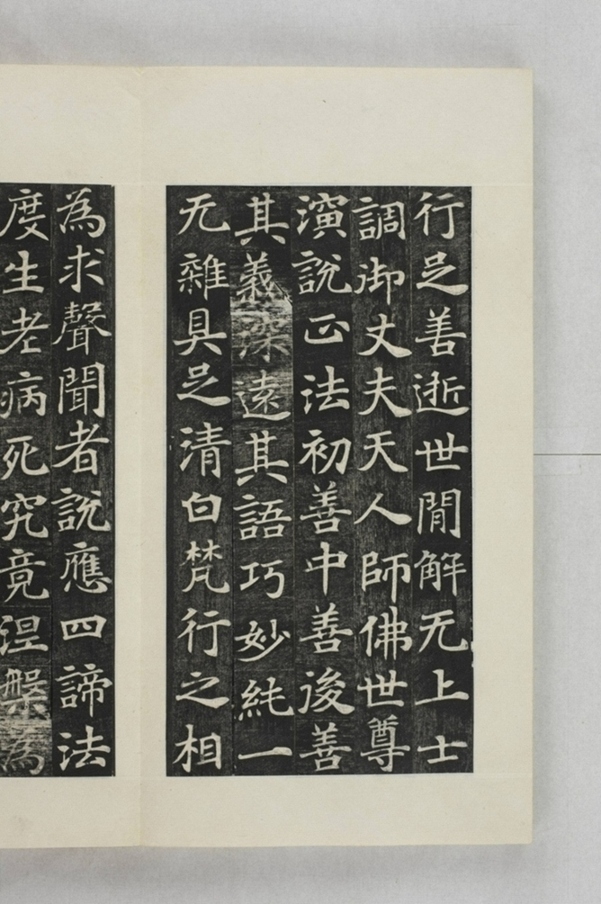 行足善逝世間解无上士
調御丈夫天人師佛世尊
演說正法初善中善後善
其義深遠其語巧妙純一
无雜具足清白梵行之相
為求聲聞者說應四諦法
度生老病死究竟涅槃為